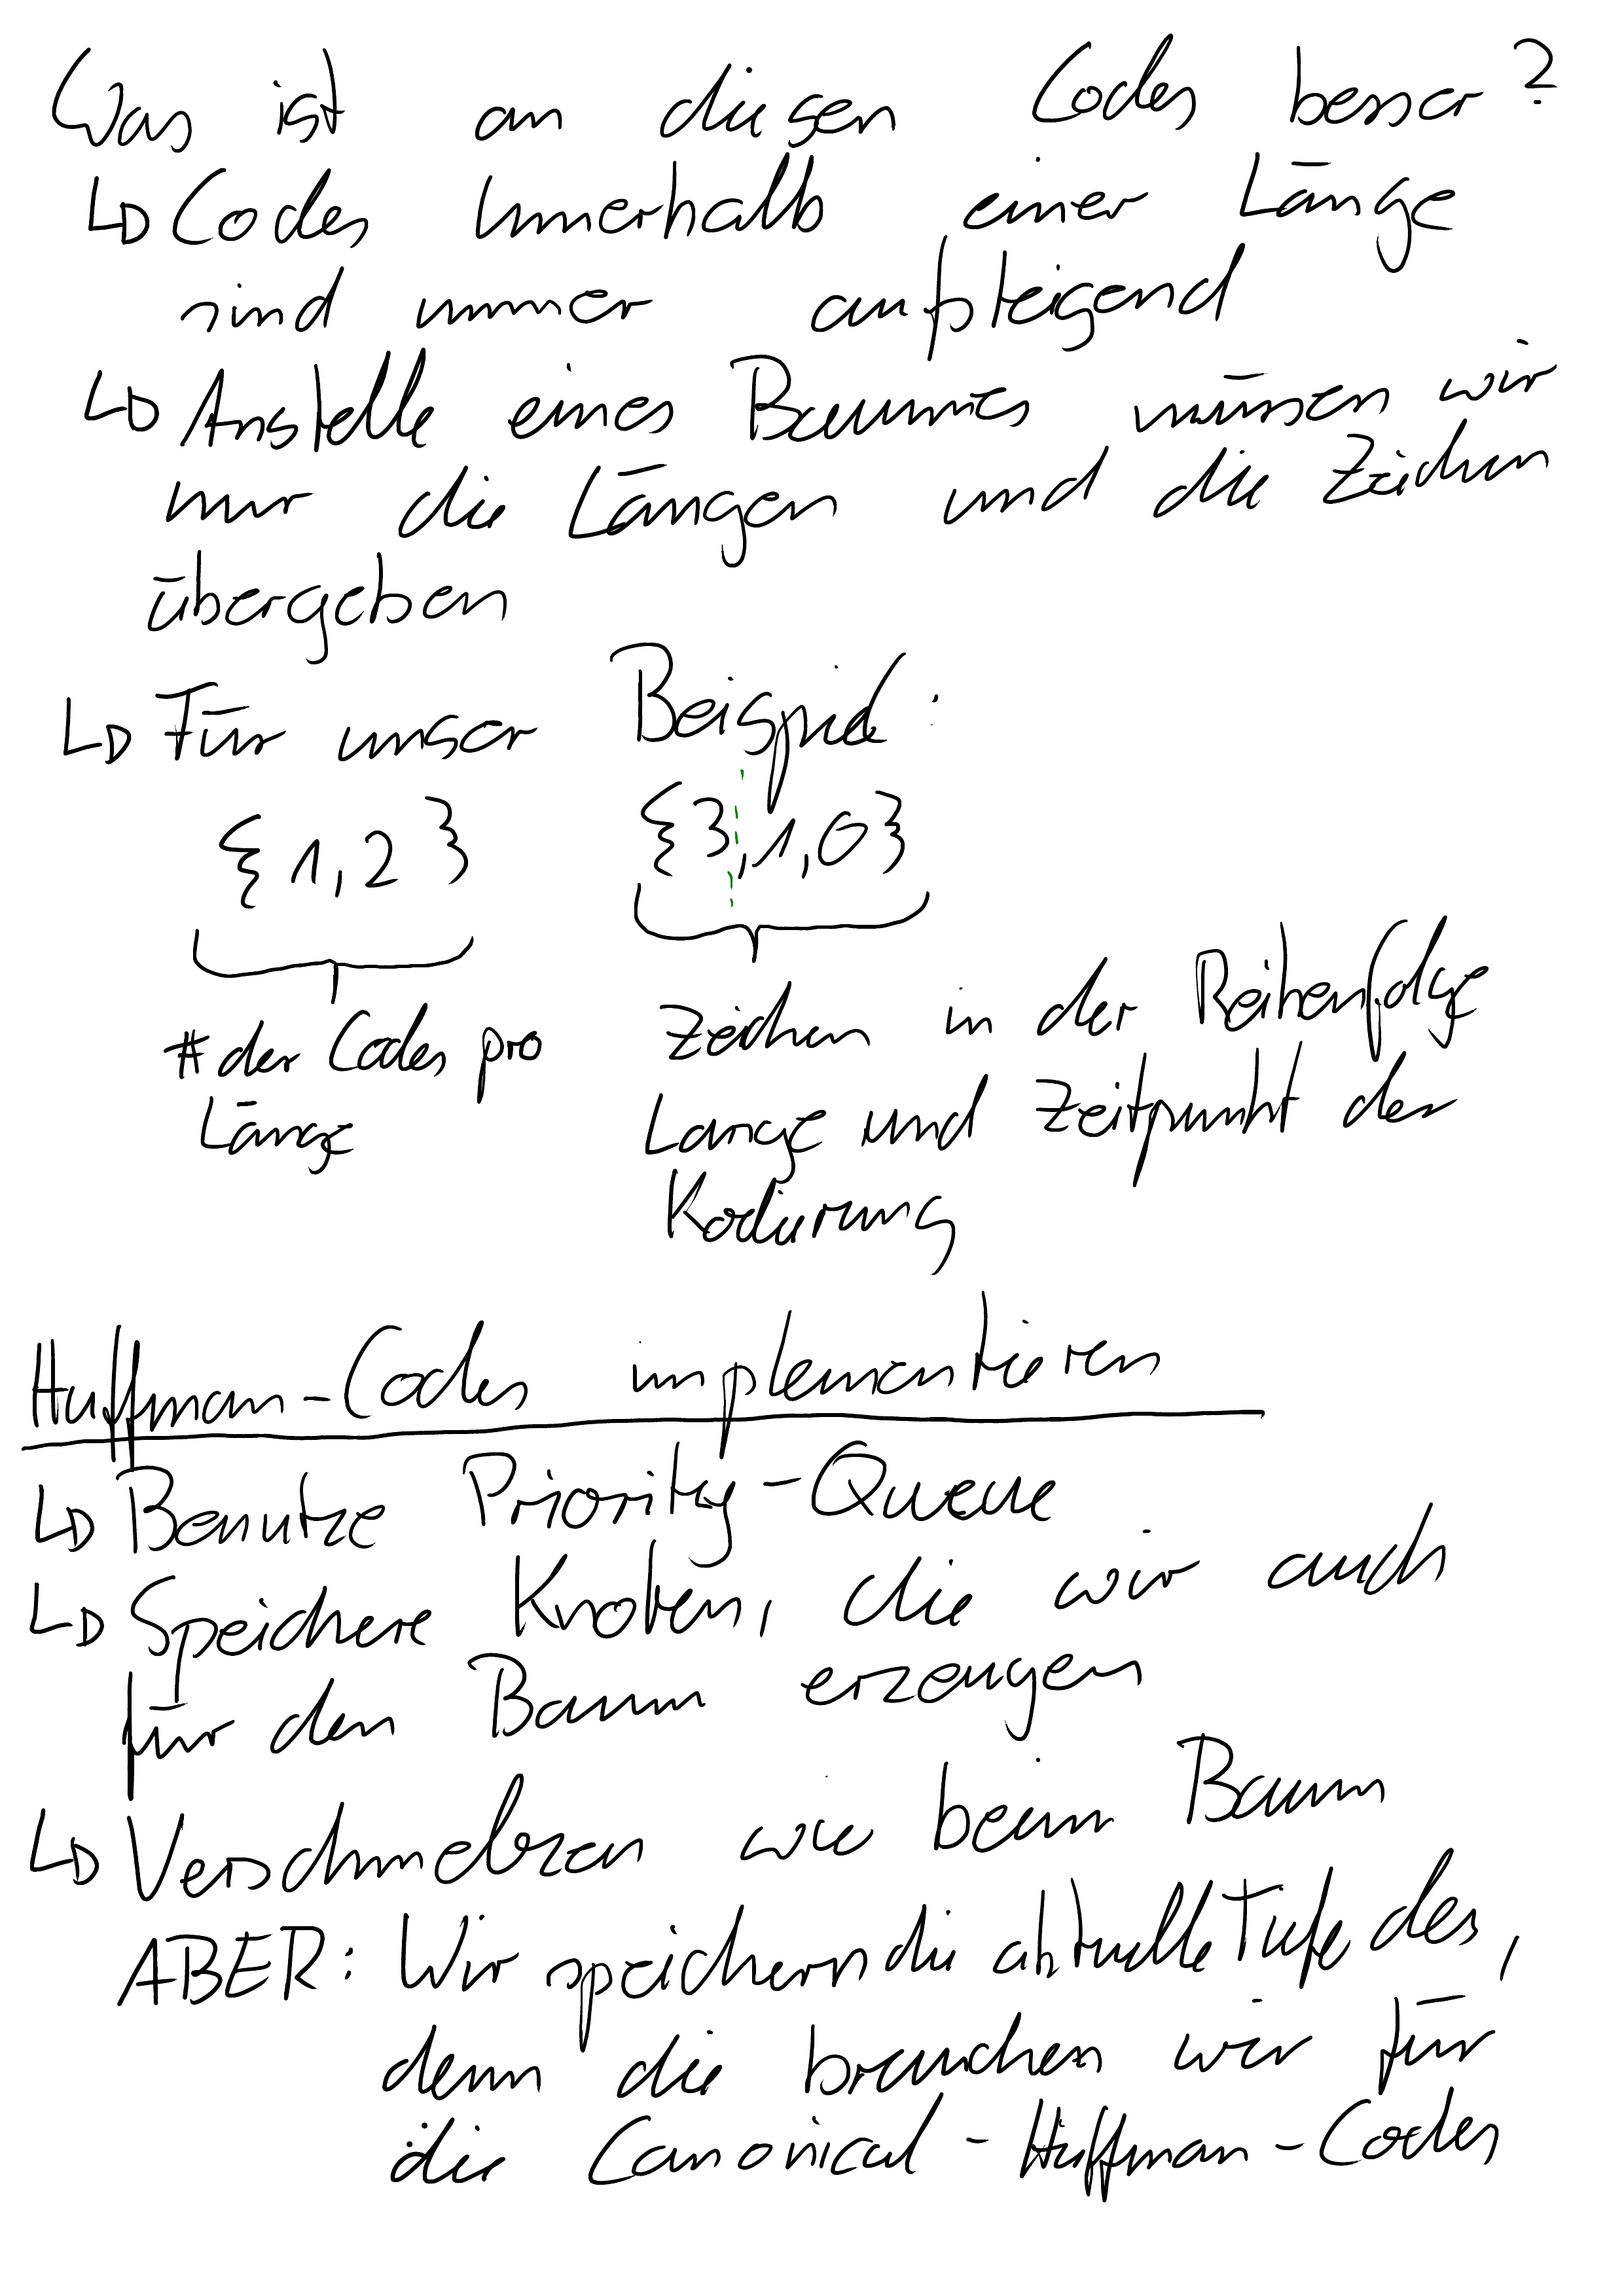 Was ist an diesen Codes besser?
↳ Codes Innerhalb einer Länge
sind immer aufsteigend
↳ Anstelle eines Baumes müssen wir
nur die Längen und die Zeichen
übergeben
↳ Für unser Beispiel:
{1,2} {3,1,0}
# der Codes pro
Länge
Zeichen in der Reihenfolge
Lange und Zeitpunkt der
Kodierung
Huffman-Codes implementieren
↳ Benutze Priority-Queue
↳ Speichere Knoten, die wir auch
für den Baum erzeugen
↳ Verschmelzen wie beim Baum
ABER: Wir speichern die aktuelle Tiefe des,
denn die brauchen wir für
die Canonical-Huffman-Codes